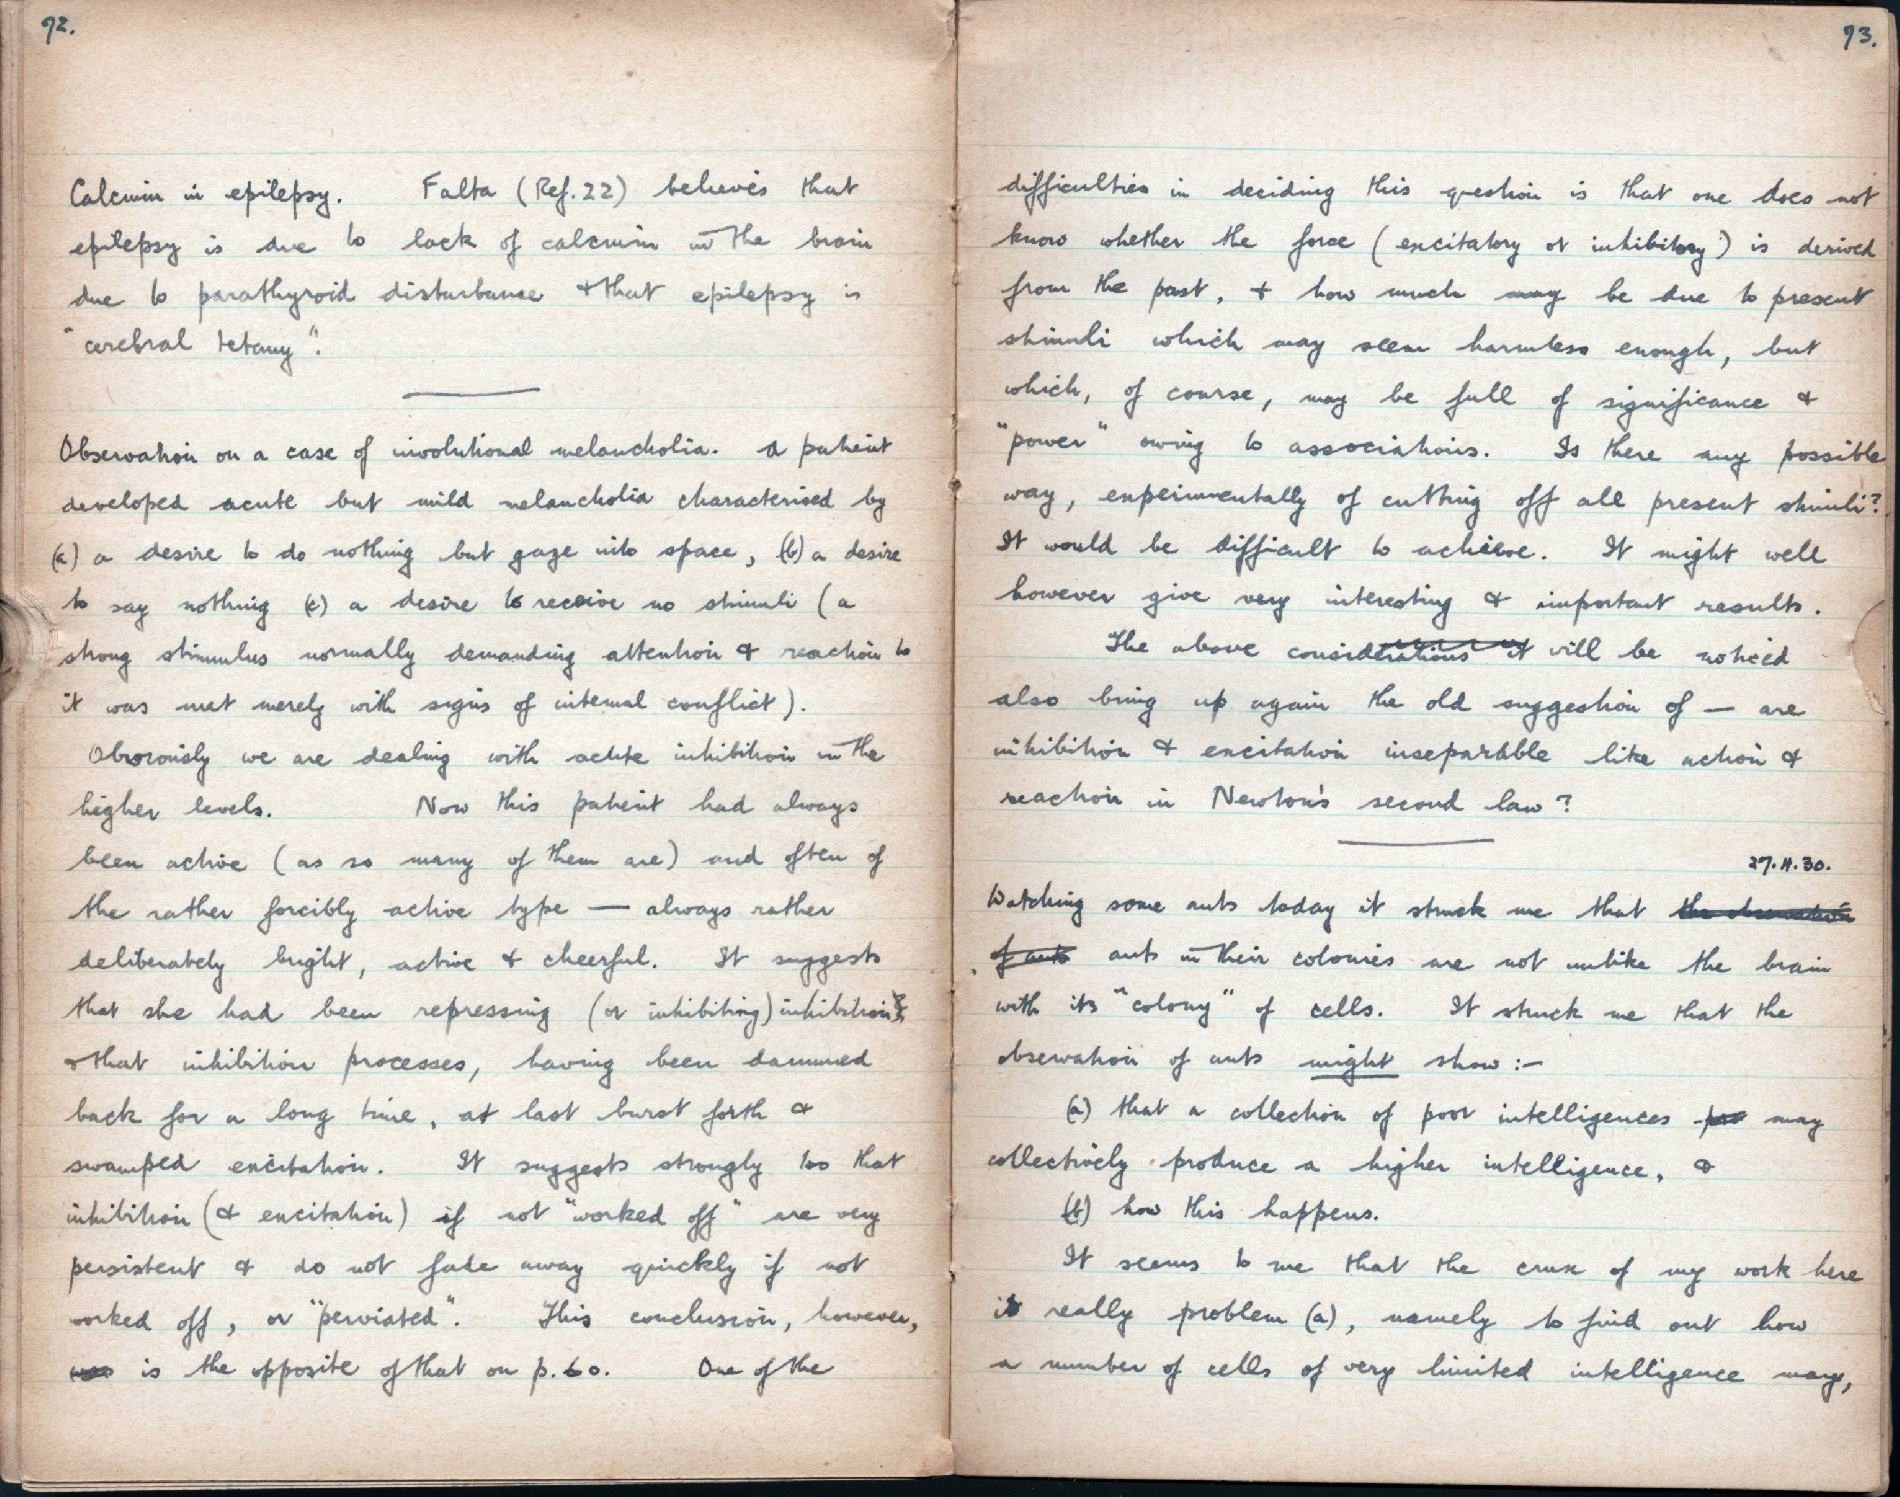 92.
Calcium in epilepsy. Falta (Ref. 22) believes that
epilepsy is due to lack of calcium in the brain
due to parathyroid disturbance & that epilepsy is
"cerebral tetany".
Observation on a case of involutional melancholia. A patient
developed acute but mild melancholia characterised by
(a) a desire to do nothing but gaze into space, (b) a desire
to say nothing (c) a desire to receive no stimuli (a
strong stimulus normally demanding attention & reaction to
it was met merely with signs of internal conflict).
Obviously we are dealing with acute inhibition in the
higher levels. Now this patient had always
been active (as so many of them are) and often of
the rather forcibly active type — always rather
deliberately bright, active & cheerful. It suggests
that she had been repressing (or inhibiting) inhibition
& that inhibition processes, having been dammed
back for a long time, at last burst forth &
swamped excitation. It suggests strongly too that
inhibition (& excitation) if not "worked off" are very
persistent & do not fade away quickly if not
worked off, or "perviated". This conclusion, however,
was is the opposite of that on p. 60. One of the
93.
difficulties in deciding this question is that one does not
know whether the force (excitatory or inhibitory) is derived
from the past, & how much may be due to present
stimuli which may seem harmless enough, but
which, of course, may be full of significance &
"power" owing to associations. Is there any possible
way, experimentally of cutting off all present stimuli?
It would be difficult to achieve. It might well
however give very interesting & important results.
The above considerations it will be noticed
also bring up again the old suggestion of — are
inhibition & excitation inseparable like action &
reaction in Newton's second law?
27.11.30.
Watching some ants today it struck me that the observation
of ants ants in their colonies are not unlike the brain
with its "colony" of cells. It struck me that the
observation of ants might show :-
(a) that a collection of poor intelligences may
collectively produce a higher intelligence, &
(b) how this happens.
It seems to me that the crux of my work here
is really problem (a), namely to find out how
a number of cells of very limited intelligence may,